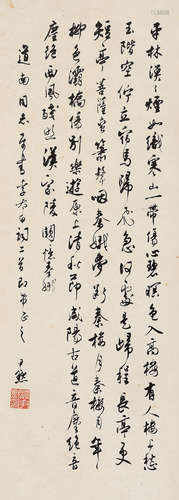 平林漠漠煙如織寒山一帶傷心碧暝色入高樓有人樓上愁
玉階空佇立宿鳥歸飛急何處是歸程長亭更
短亭 菩薩蠻 簫聲咽秦娥夢斷秦樓月秦樓月年
柳色灞橋傷別樂遊原上清秋節咸陽古道音塵絕音
塵絕西風殘照漢家陵闕 憶秦娥
同志 書李太白詞二首即 正之
尹默